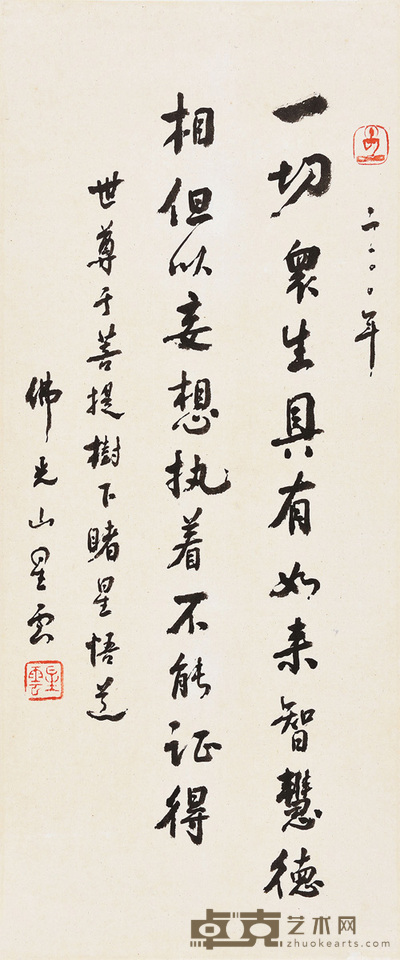 二〇〇〇年
一切眾生具有如来智慧德
相但以妄想执着不能证得
世尊于菩提樹下睹星悟道
佛光山星雲
星雲
卓克艺术网
zhuokearts.com